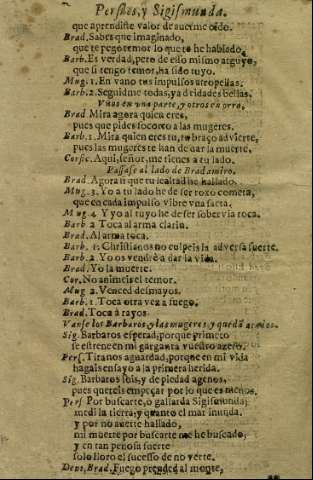 Persiles, y Sigismunda.
que aprendiste valor de auerme oido.
Brad. Sabes que imaginado,
que te pegò temor lo que te he hablado.
Barb. Es verdad, pero de esso mismo arguyo,
que si tengo temor, ha sido tuyo.
Mug. 1. En vano tus impulsos atropellas.
Barb. 2. Seguidme todas, ya deidades bellas.
Vnos en vna parte, y otros en otra,
Brad. Mira agora quien eres,
pues que pides socorro a las mugeres.
Barb. 1. Mira quien eres tu, tu braço aduierte,
pues las mugeres te han de dar la muerte.
Corsic. Aqui, señor, me tienes a tu lado.
Passase al lado de Bradamiro.
Brad. Agora si que lealtad he hallado.
Mug. 3. Yo a tu lado he de ser roxo cometa,
que en cada impulso vibre vna saeta.
Mug. 4 Y yo al tuyo he de ser soberuia roca.
Barb. 2 Toca al arma clarin.
Brad. Al arma toca.
Barb. 1. Christianos no culpeis la aduersa suerte.
Barb. 2. Yo os vendrè a dar la vida.
Brad. Yo la muerte.
Cor. No animeis el temor.
Mug. 2. Venced desmayos.
Barb. 1. Toca otra vez a fuego.
Brad. Toca à rayos.
Vanse los Barbaros, y las mugeres y quedã
Sig. Barbaros esperad, porque primero
se estrene en mi garganta vuestro azero.
Pers. Tiranos aguardad, porque en mi vida
hagais ensayo a la primera herida.
Sig. Barbaros sois, y de piedad agenos,
pues quereis empeçar por lo que es menos.
Pers. Por buscarte, o gallarda Sigismunda,
medi la tierra, y quanto el mar inunda.
y por no auerte hallado,
mi muerte por buscarte me he buscado,
y en tan penosa suerte
solo lloro el sucesso de no verte.
Dent. Brad. Fuego prended al monte,